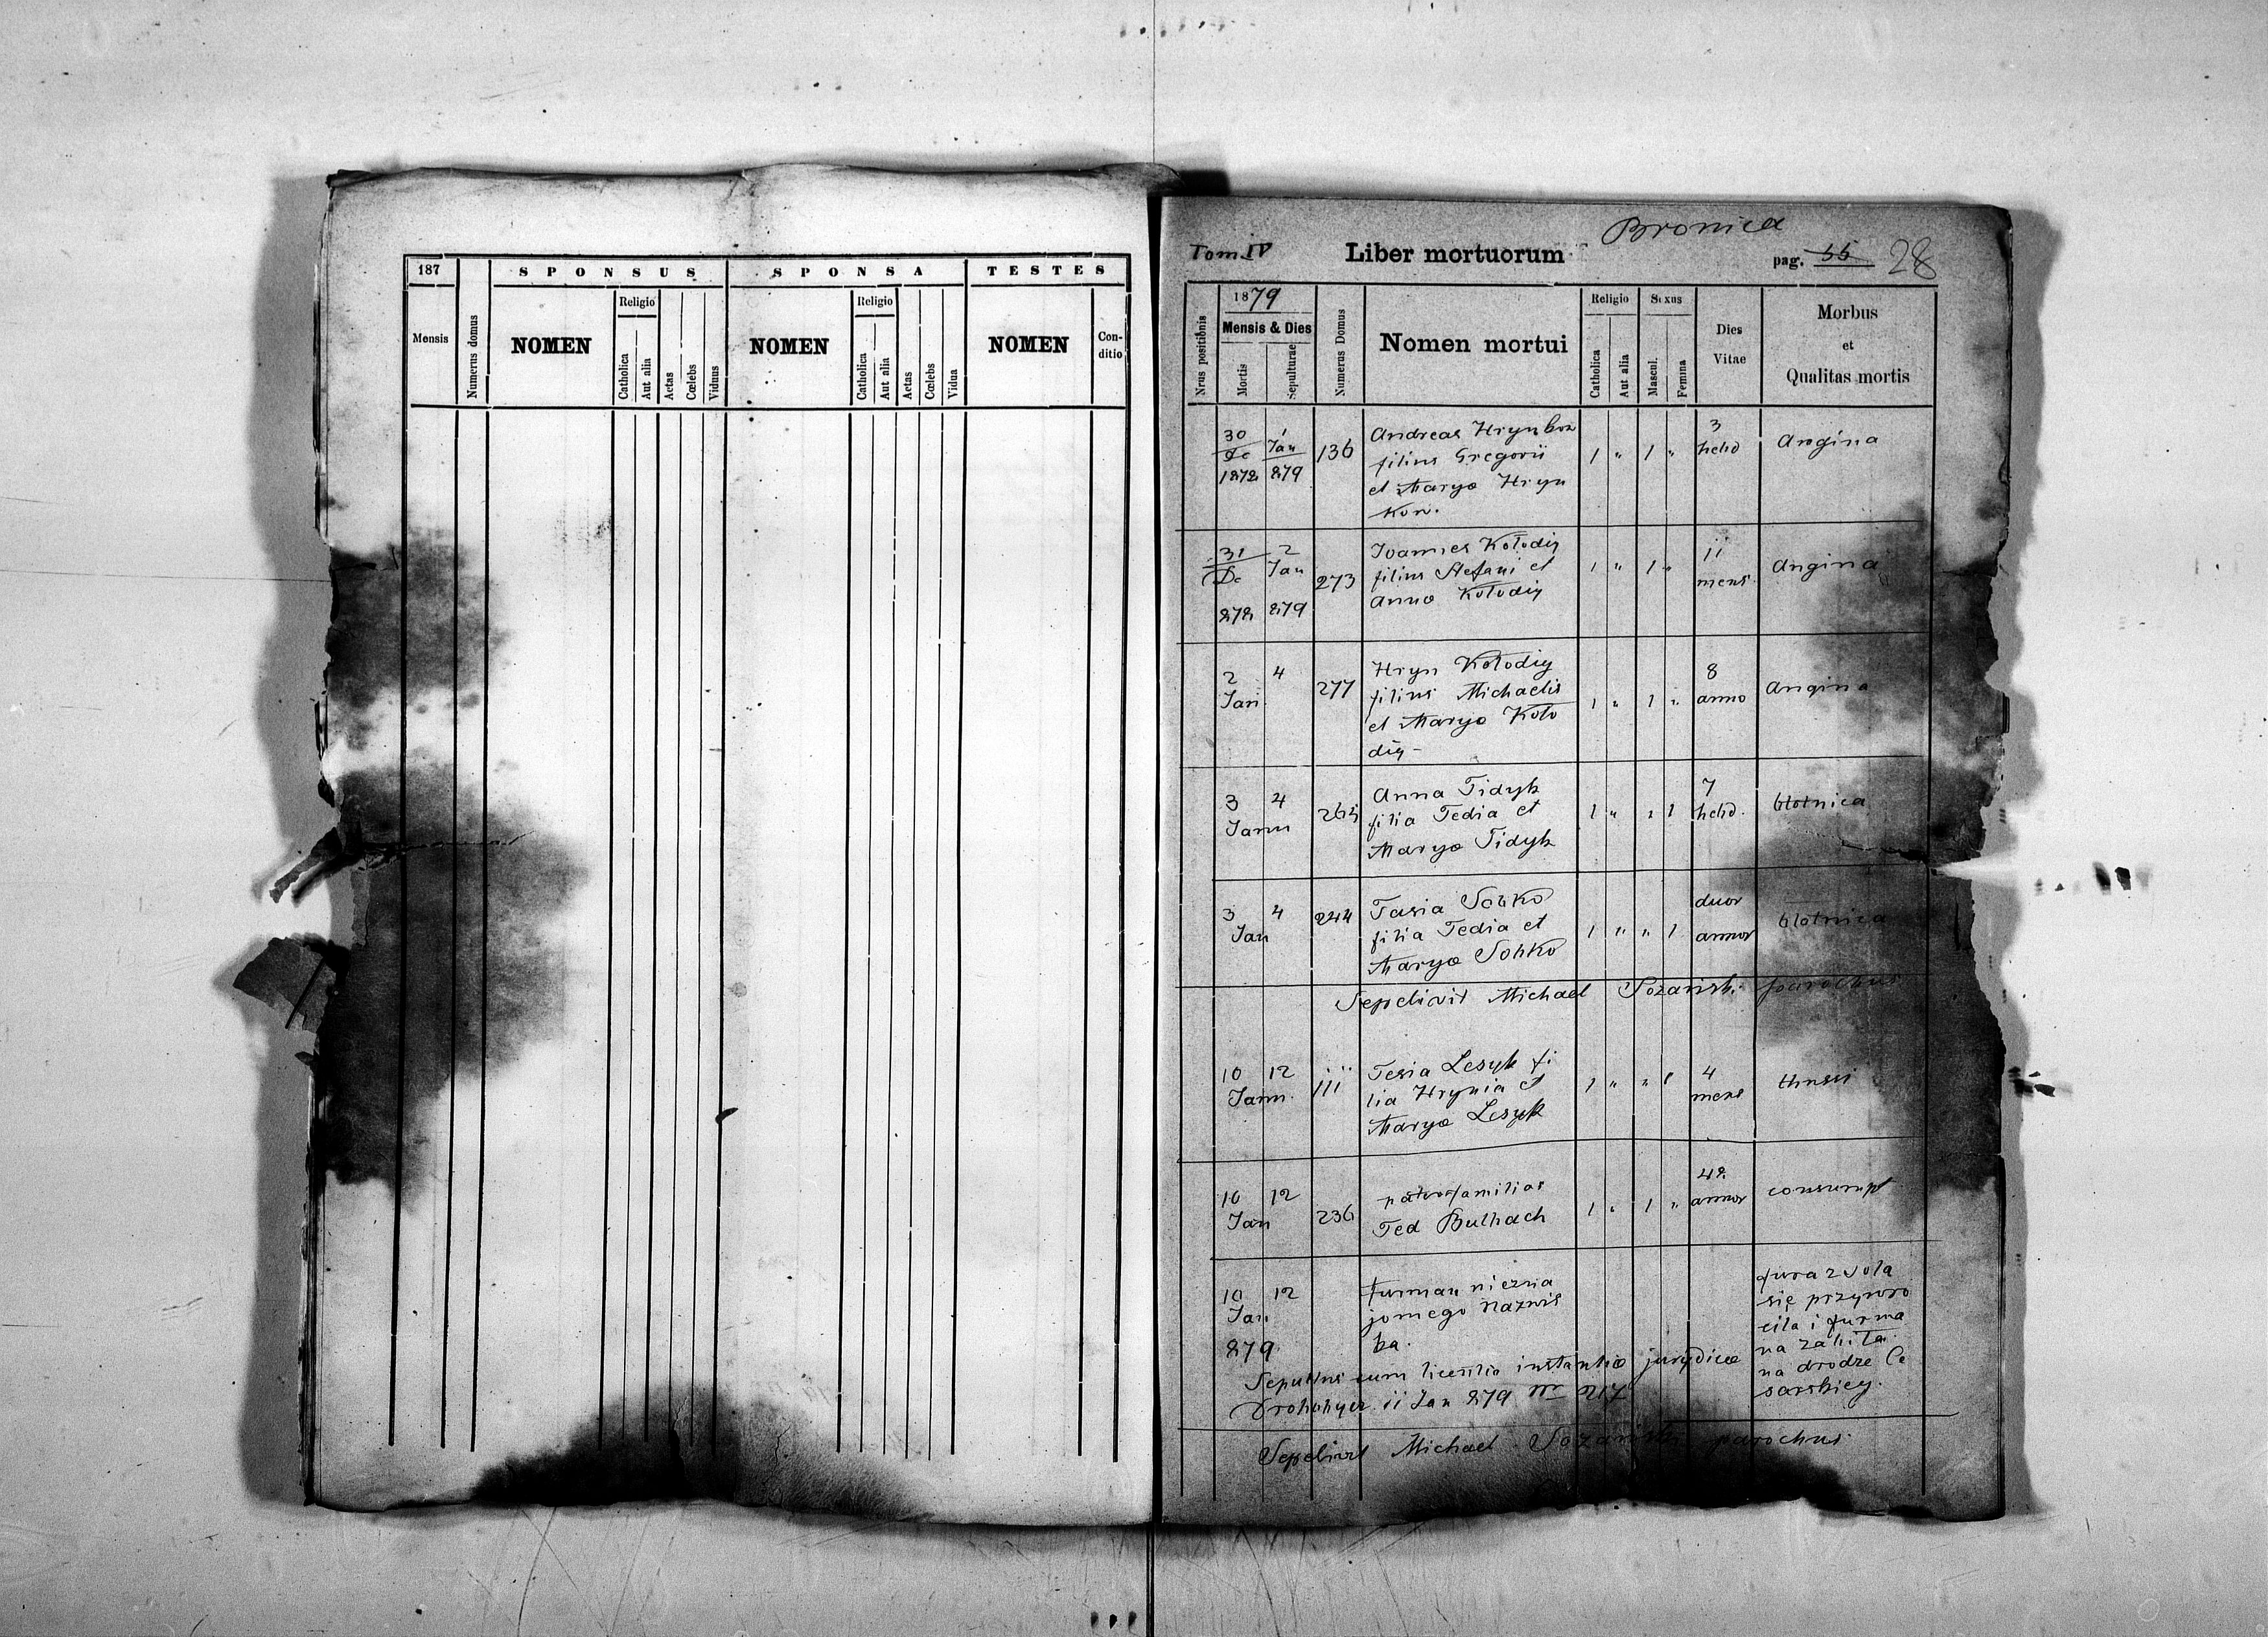 187
SPONSUS
SPONSA
TESTES
Mensis
Numerus domus
NOMEN
Religio
Catholica
Aut alia
Aetas
Cœlebs
Viduus
NOMEN
Religio
Catholica
Aut alia
Aetas
Cœlebs
Vidua
NOMEN
Con-
ditio
Tom IV
Liber mortuorum
Bronica
pag. 55 28
Nrus positionis
1879
Mensis & Dies
Mortis
Sepulturae
Numerus Domus
Nomen mortui
Religio
Catholica
Aut alia
Sexus
Mascul.
Femina
Dies
Vitae
Morbus
et
Qualitas mortis
30 1 136 Andreas Hryn 1 " 1 " 3 Angina
Dc Jan filius Gregorii hebd
1878 879 et Marya Hryn
kow.
31 2 273 Joannes Kołodiy 1 " 1 " 11 Angina
Dc Jan filius Stefani et mens
878 879 Anna Kołodiy
2 4 277 Hryn Kołodiy 1 " 1 " 8 Angina
Jan filius Michaelis anno
et Marya Koło
diy -
3 4 265 Anna Tidyk 1 " " 1 7 blotnica
Janu filia Fedia et hebd.
Marya Tidyk
3 4 244 Tasia Sobko 1 " " 1 duor blotnica
Jan filia Fedia et annor
Marya Sobko
Sepelivit Michael Sozański parochus
10 12 111 Tesia Lesyk fi 1 " " 1 4 thussi
Janu. lia Hrynia et mens
Marya Lesyk
10 12 236 paterfamilias 1 " 1 " 48 consumpt
Jan Fed Bulhach annor
10 12 Furman niezna
Jan jomego nazwis
879 ka.
fura z solą
się przywró
ciła i furma
na zabiła
na drodze Ce
sarskiey.
Sepultus cum licentia instantia jurydica
Drohobycz 11 Jan 879 Nr 217
Sepelivit Michael Sozański parochus